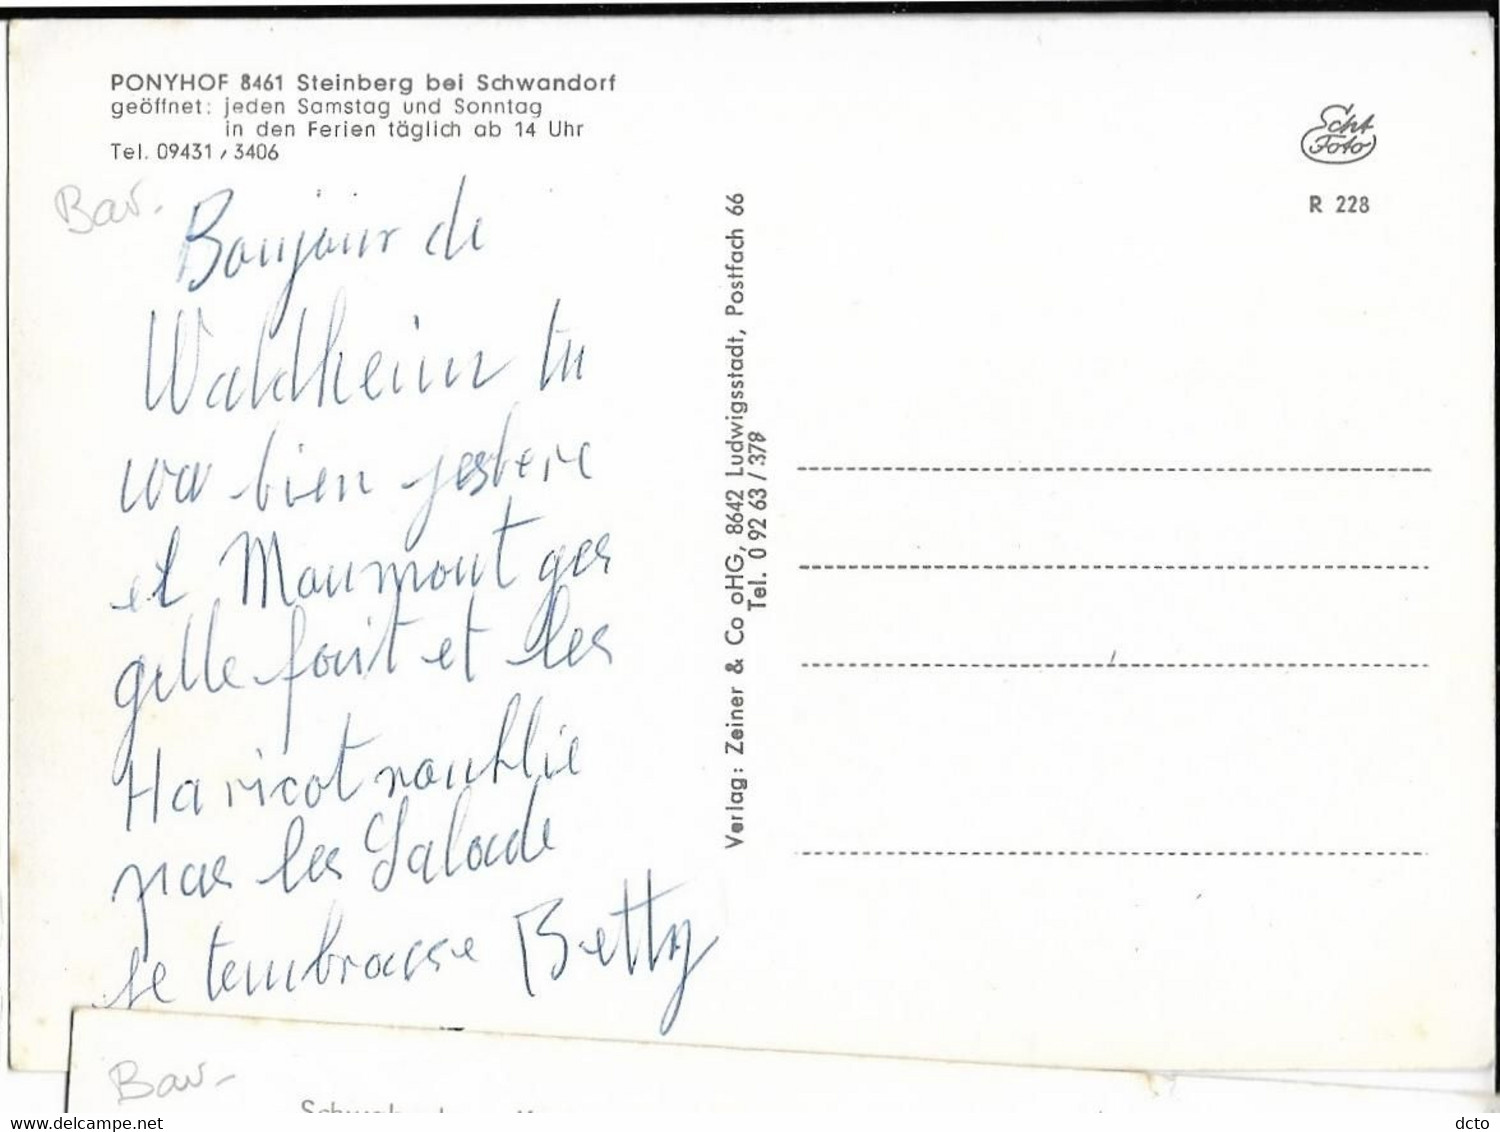 PONYHOF 8461 Steinberg bei Schwandorf
geöffnet: jeden Samstag und Sonntag
in den Ferien täglich ab 14 Uhr
Tel. 09431 / 3406
Bav.
Bonjour de
Waldheim tu
va bien jesbere
et Maumout ges
gelle fait et les
Haricot noublie
pas les Salade
je tembrasse Betty
Verlag: Zeiner & Co oHG, 8642 Ludwigsstadt, Postfach 66
Tel. 0 92 63 / 378
Echt
Foto
R 228
Bav-
delcampe.net
dcto